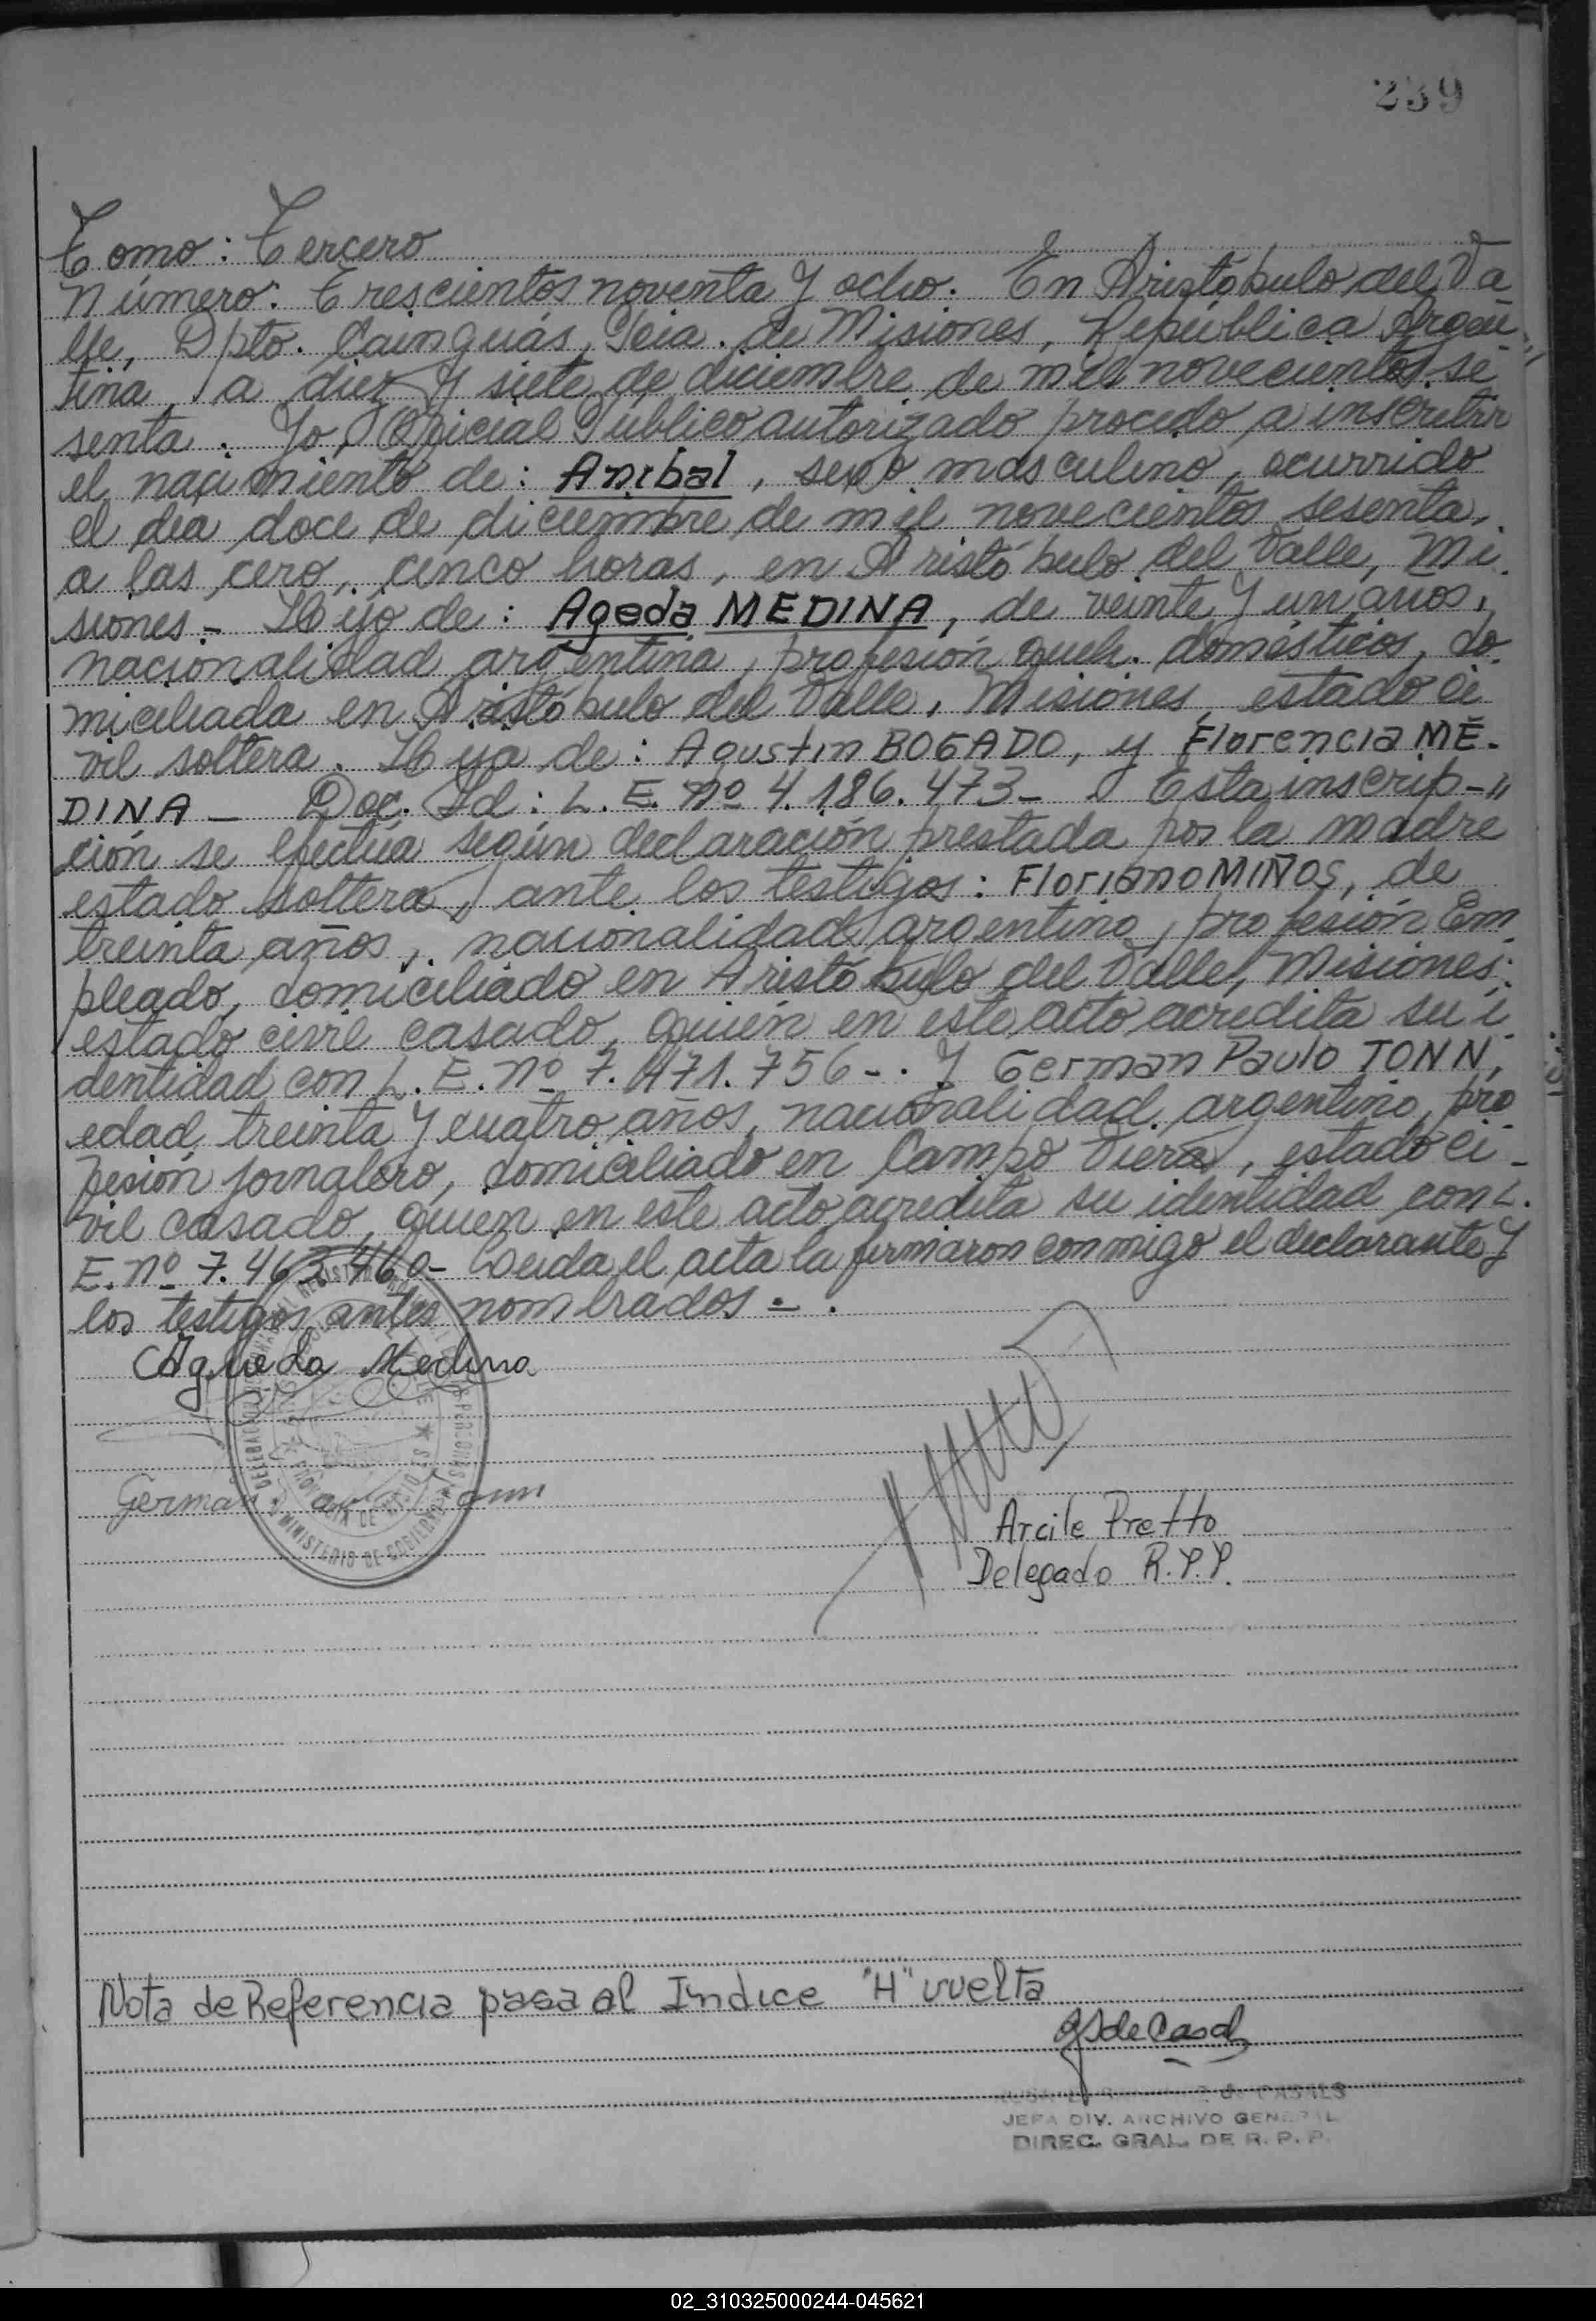 239
Tomo: Tercero
Número: Trescientos noventa y ocho. En Aristóbulo del Va
lle, Dpto. Cainguás, Pcia. de Misiones, República Argen
tina, a diez y siete de diciembre de mil novecientos se
senta. Yo, Oficial Público autorizado procedo a inscribir
el nacimiento de: Anibal, sexo masculino, ocurrido
el dia doce de diciembre de mil novecientos sesenta,
a las cero, cinco horas, en Aristóbulo del Valle, Mi
siones.- Hijo de: Ageda MEDINA, de veinte y un años,
nacionalidad argentina, profesión queh. domésticos, do
miciliada en Aristóbulo del Valle, Misiones, estado ci
vil soltera. Hija de: Agustin BOGADO, y Florencia ME-
DINA - Doc. Id: L. E. Nº 4.186.473- Esta inscrip-"
ción se efectúa según declaración prestada por la madre
estado soltera, ante los testigos: Floriano MIÑOS, de
treinta años, nacionalidad argentino, profesión Em
pleado, domiciliado en Aristóbulo del Valle, Misiones;
estado civil casado, quien en este acto acredita su i
dentidad con L. E. nº 7.471.756-. Y German Paulo TONN,
edad treinta y cuatro años, nacionalidad argentino, pro
fesión jornalero, domiciliado en Campo Viera, estado ci-
vil casado, quien en este acto acredita su identidad con L.
E. nº 7.463.460- Leida el acta la firmaron conmigo el declarante y
los testigos antes nombrados-.
Agueda Medina
German Tonn
Arcile Pretto
Delegado R.P.P.
Nota de Referencia pasa al Indice "H" vuelta
JEFA DIV. ARCHIVO GENERAL
DIREC. GRAL. DE R. P. P.
02_310325000244-045621